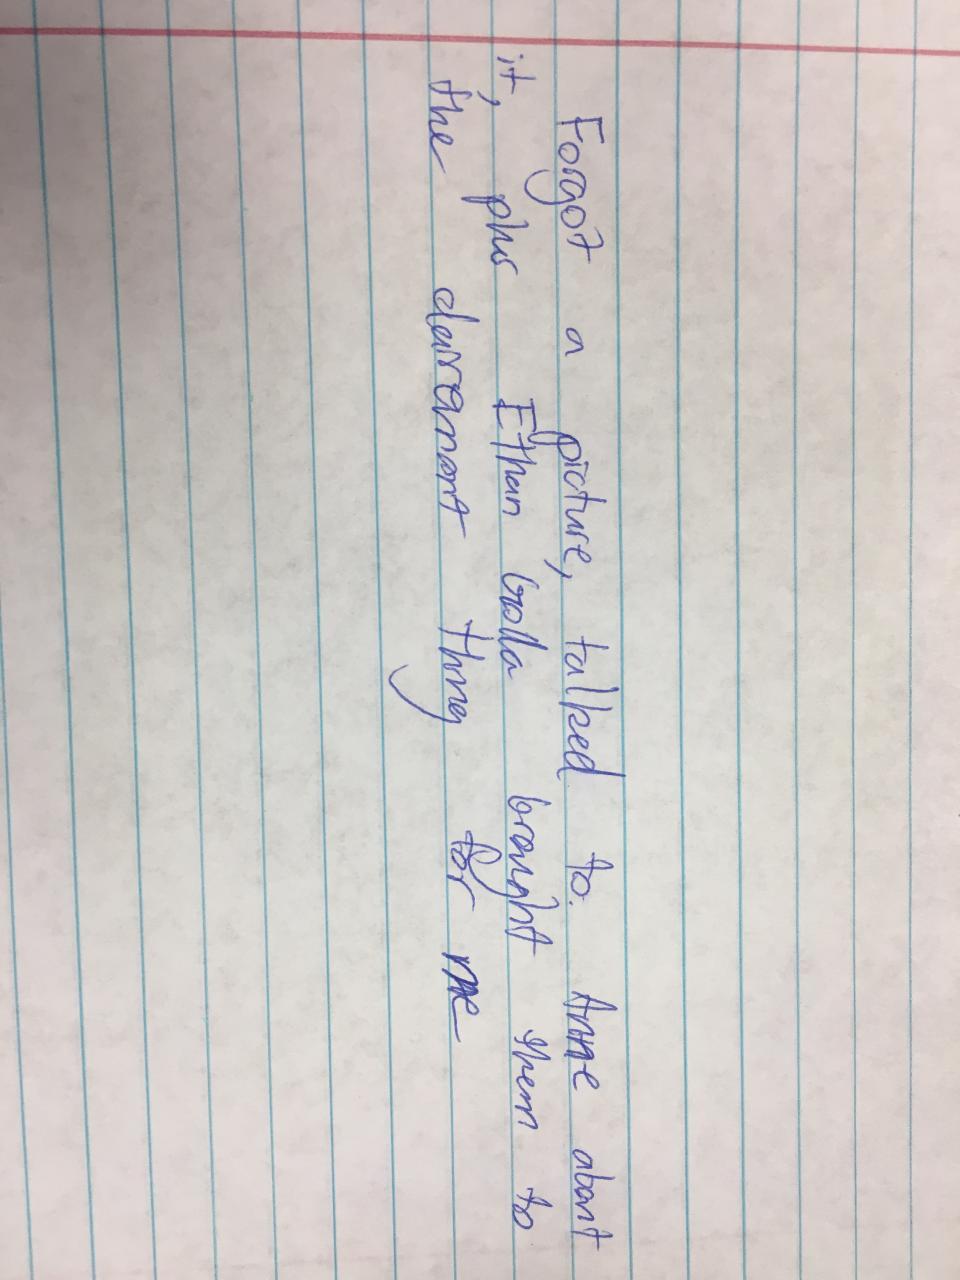 Forgot a picture, talked to. Anne about
it, plus Ethan brought them to
the thing for me